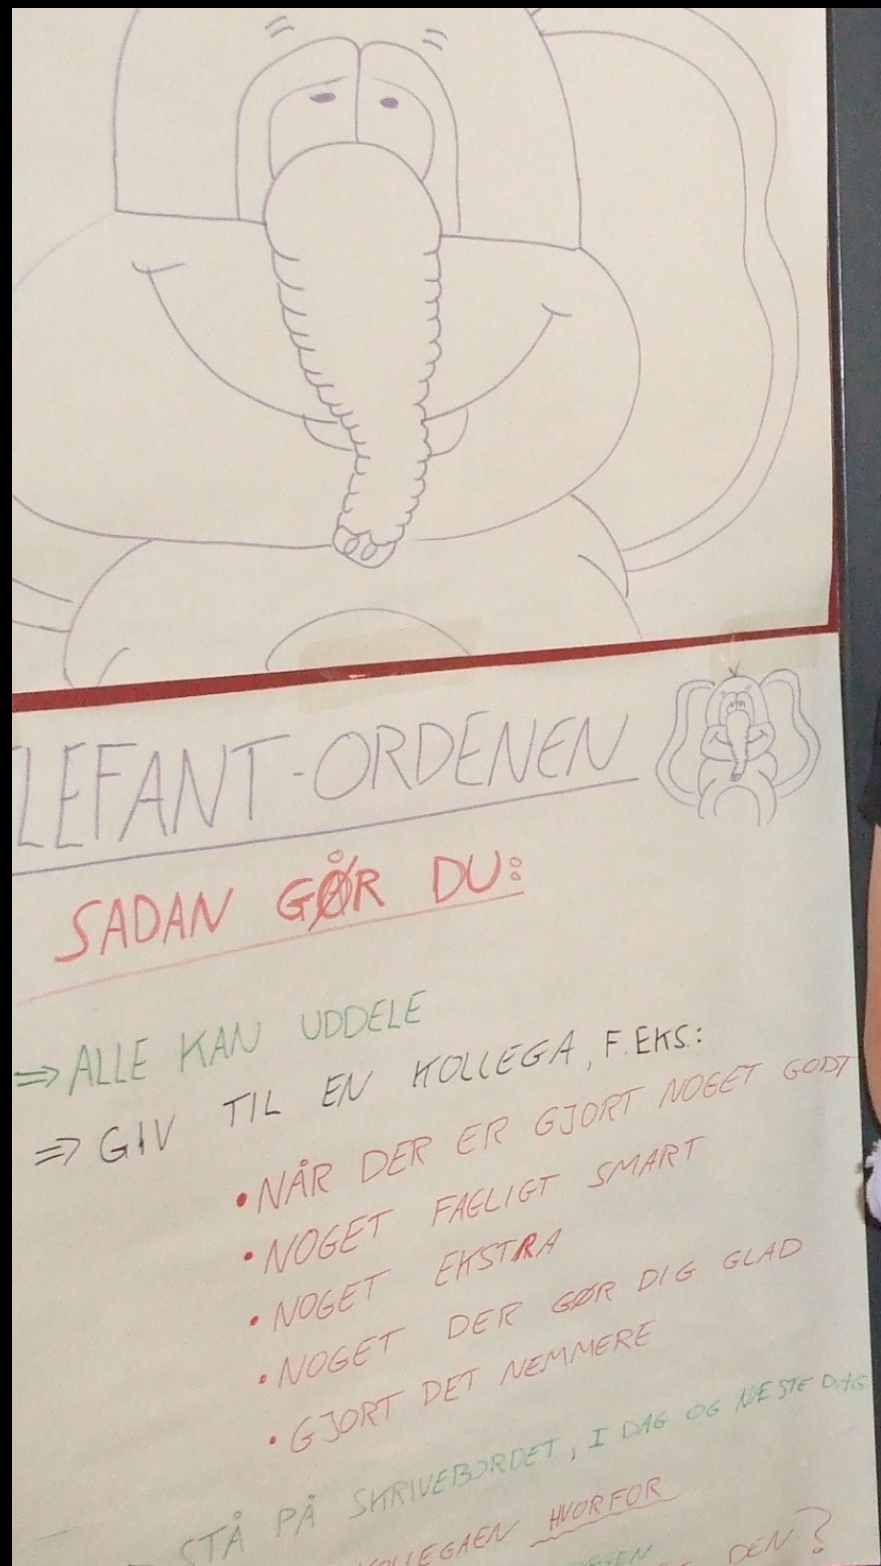 LEFANT-ORDENEN
SADAN GØR DU:
⇒ ALLE KAN UDDELE
⇒ GIV TIL EN KOLLEGA, F.EKS:
• NÅR DER ER GJORT NOGET GODT
• NOGET FAGLIGT SMART
• NOGET EKSTRA
• NOGET DER GØR DIG GLAD
• GJORT DET NEMMERE
STÅ PÅ SKRIVEBORDET, I DAG OG NÆSTE DAG
KOLLEGAEN HVORFOR
DEN?